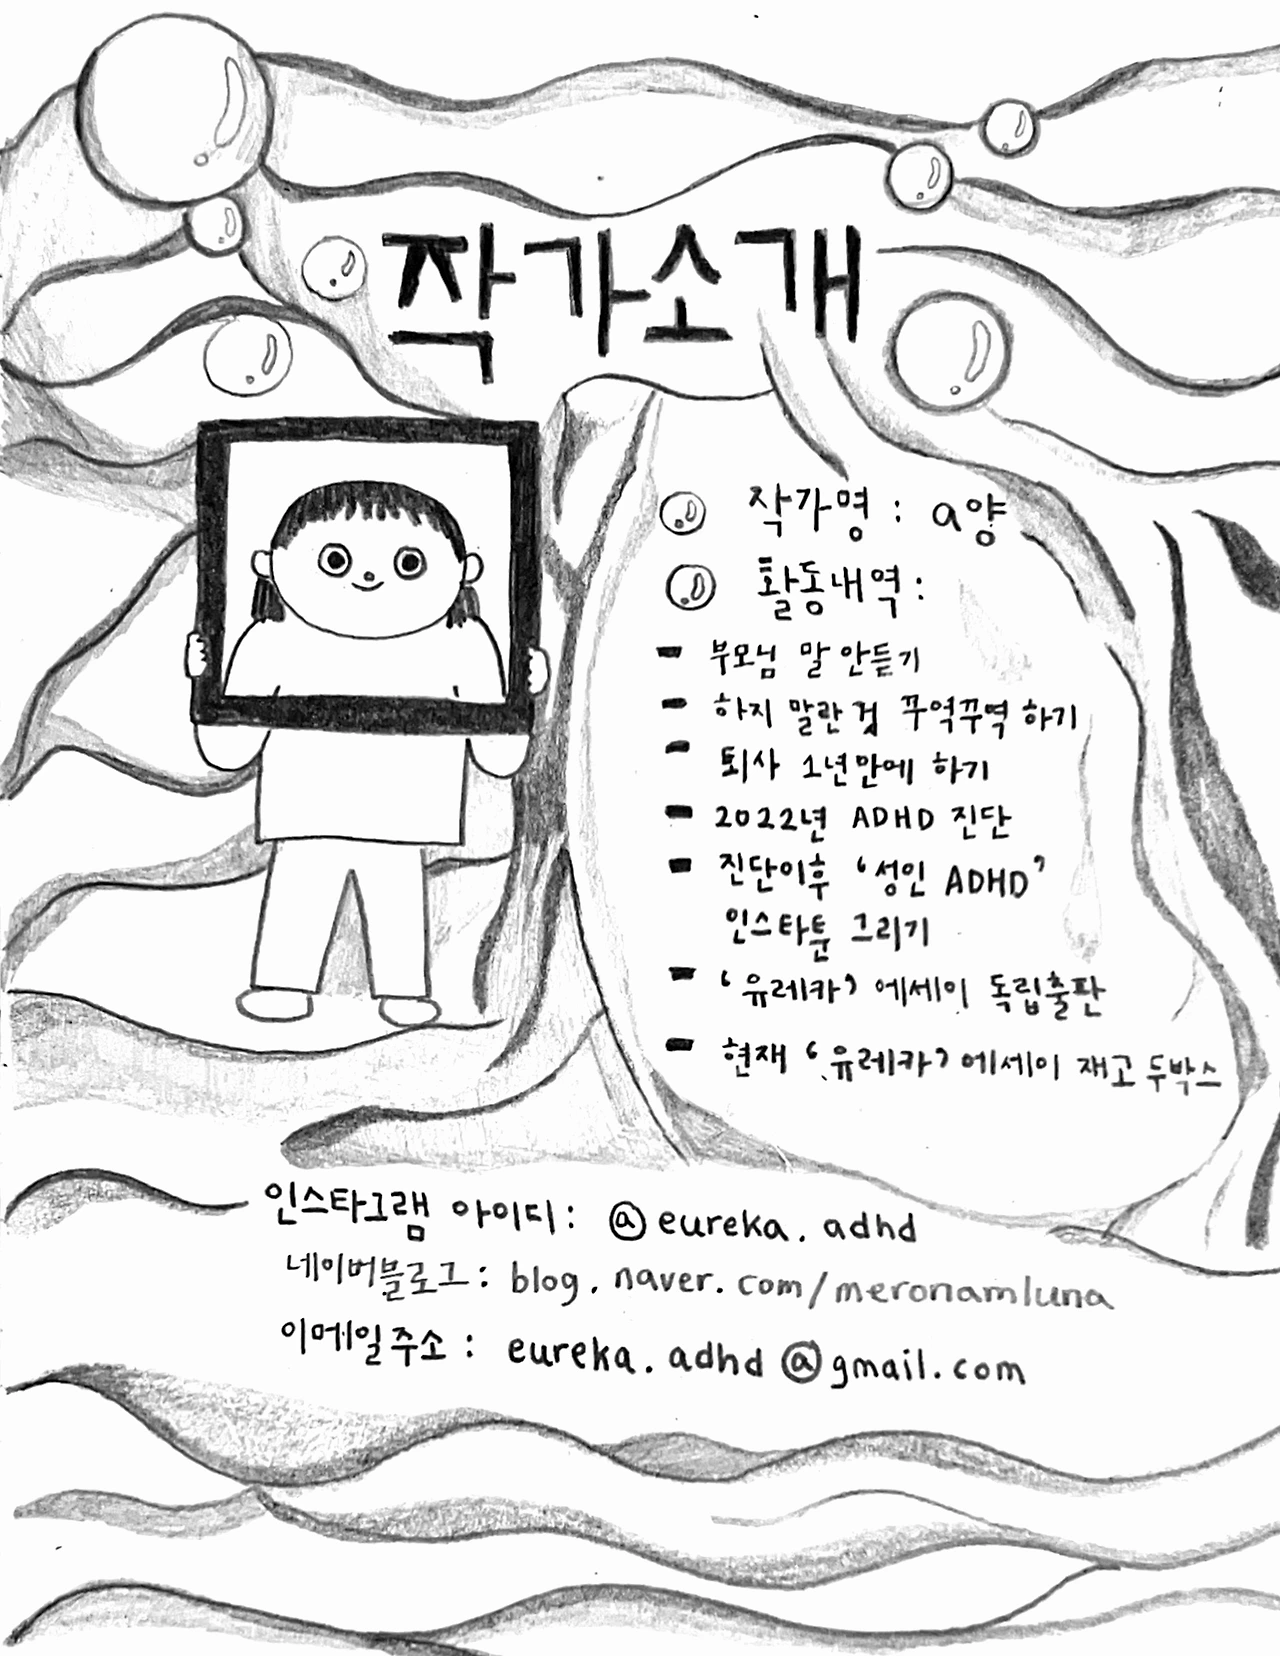 작가소개
작가명 : a양
활동내역 :
- 부모님 말 안듣기
- 하지 말란 것 꾸역꾸역 하기
- 퇴사 1년만에 하기
- 2022년 ADHD 진단
- 진단이후 '성인 ADHD'
인스타툰 그리기
- '유레카' 에세이 독립출판
- 현재 '유레카' 에세이 재고 두박스
인스타그램 아이디 : @eureka.adhd
네이버블로그 : blog.naver.com/meronamluna
이메일주소 : eureka.adhd@gmail.com